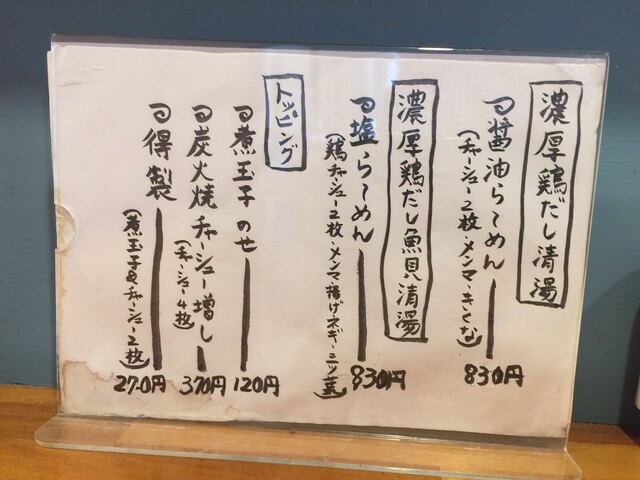 濃厚鶏だし清湯
醤油らーめん 830円
(チャーシュー2枚・メンマ・キクな)
濃厚鶏だし魚貝清湯
塩らーめん 830円
(鶏チャーシュー2枚・メンマ・揚げネギ・三ッ葉)
トッピング
煮玉子のせ 120円
炭火焼チャーシュー増し 370円
(チャーシュー4枚)
得製 270円
(煮玉子&チャーシュー2枚)